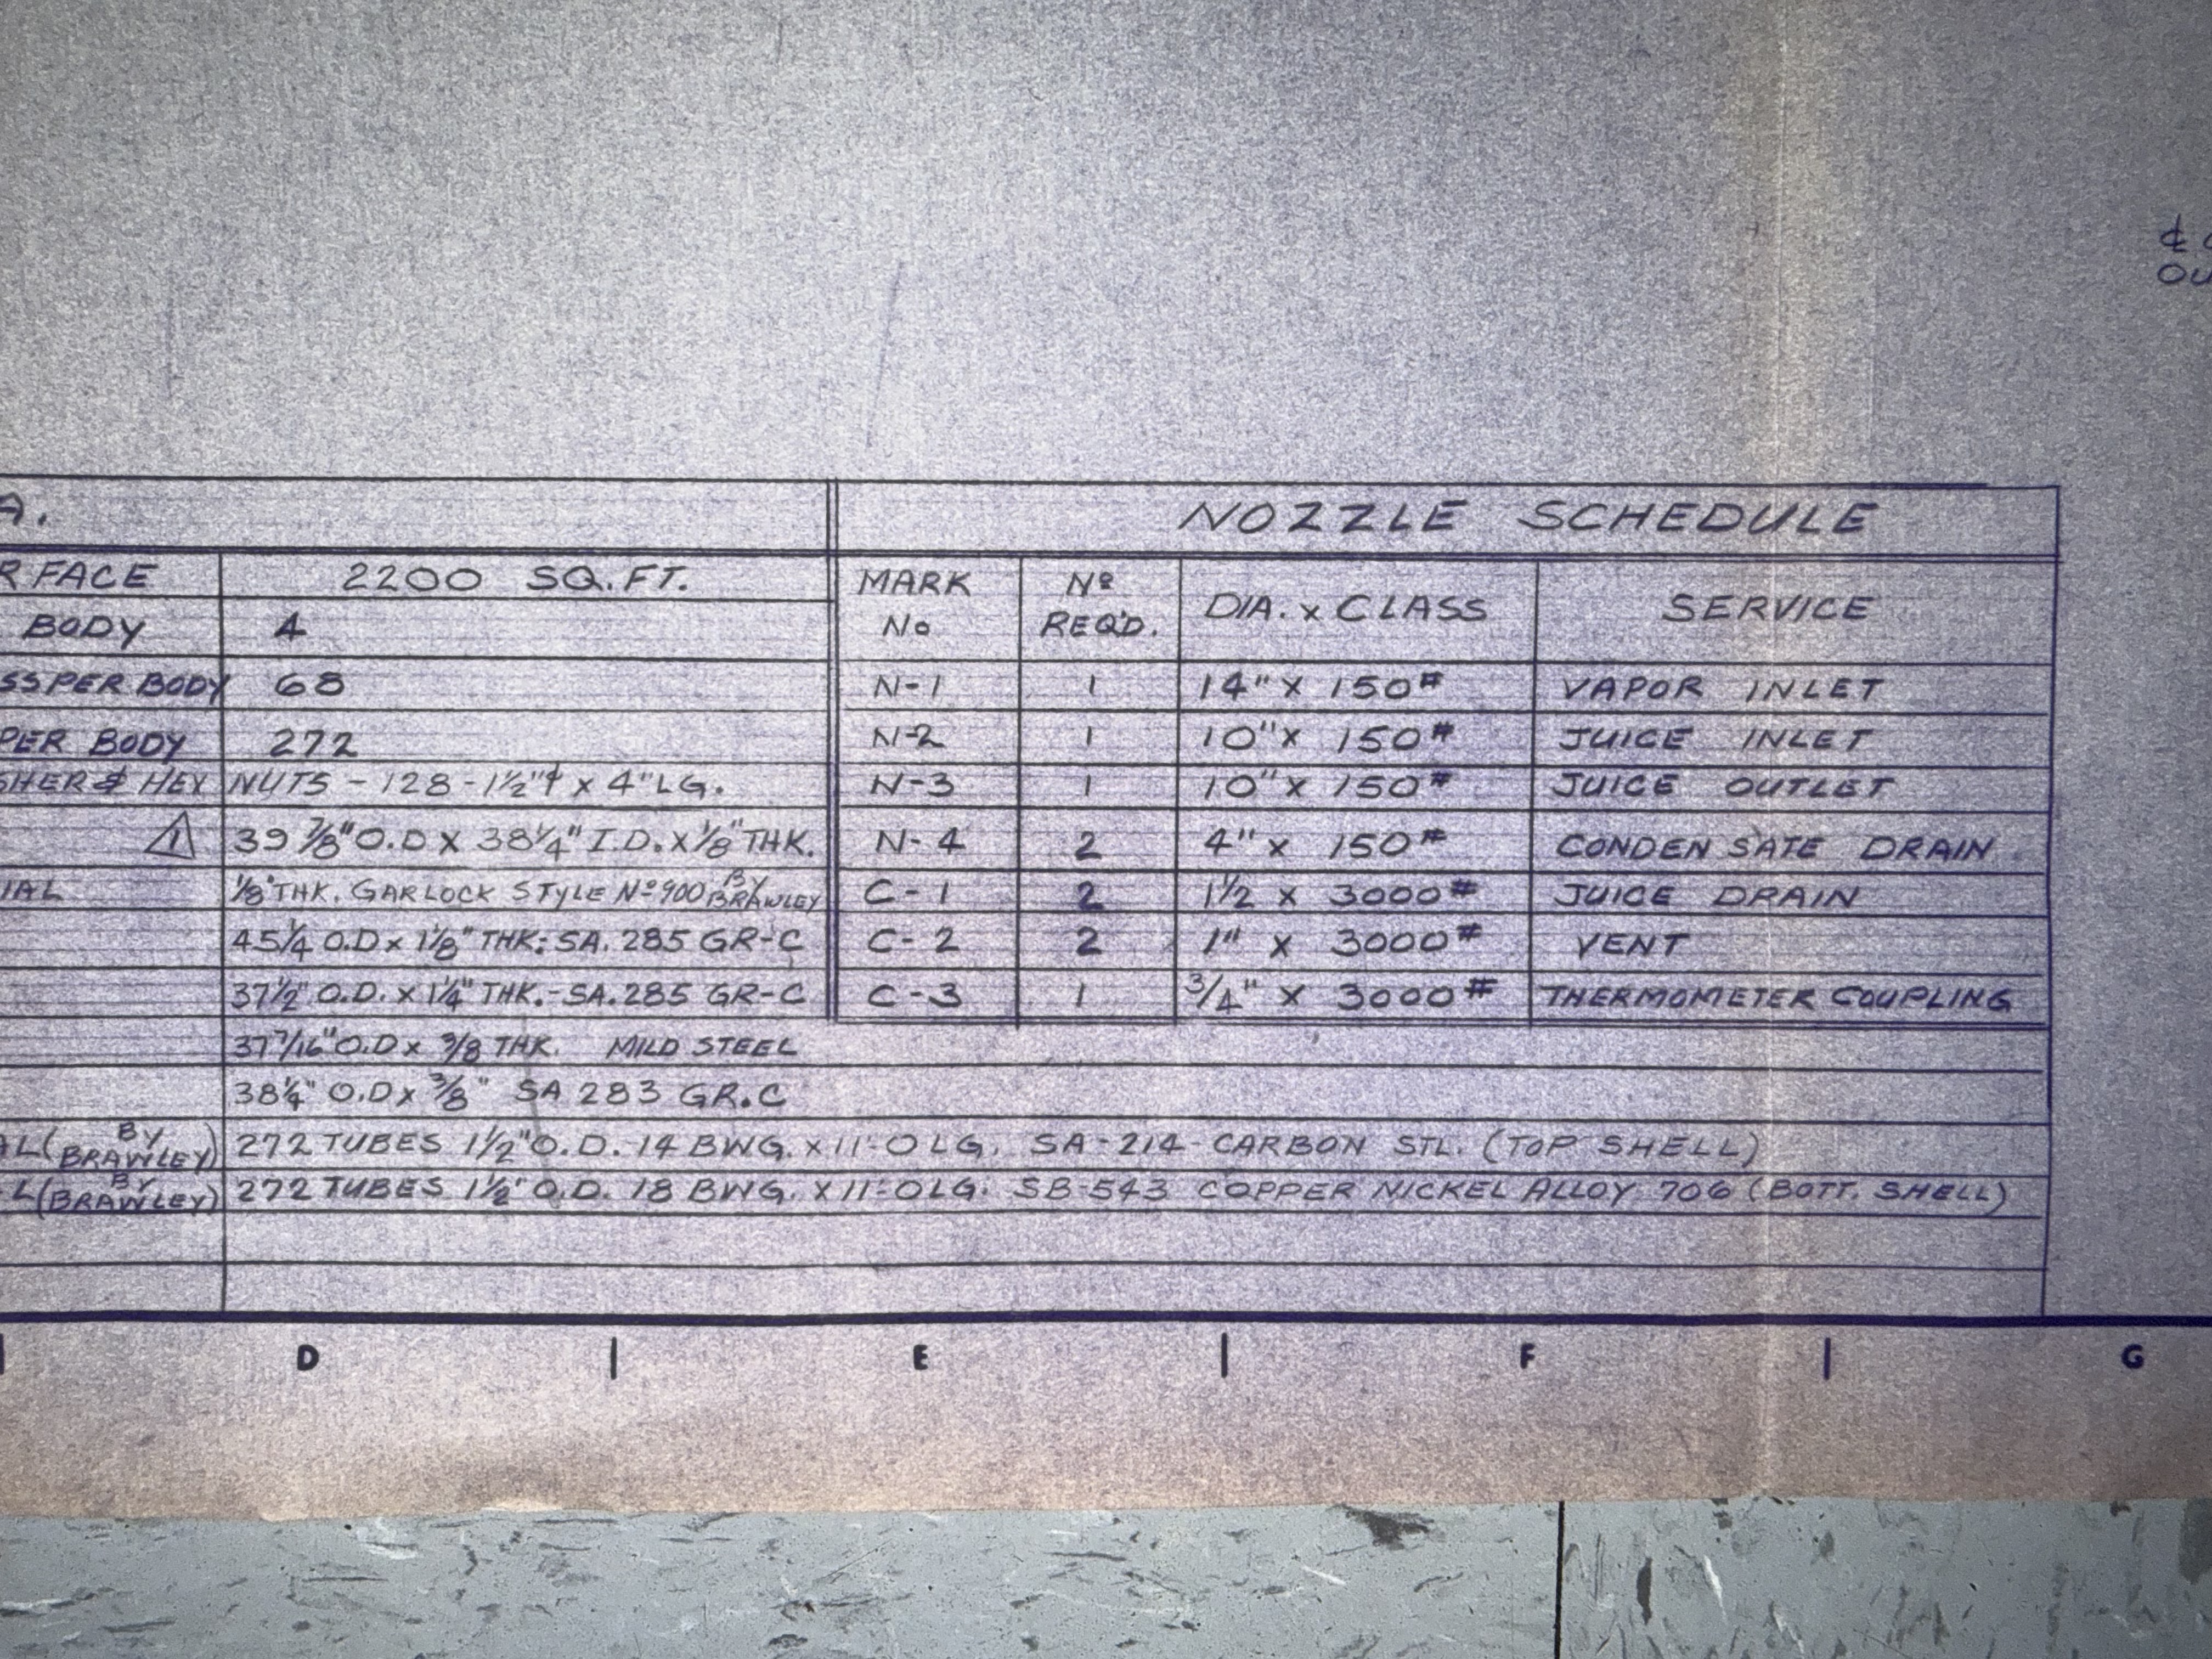 A. NOZZLE SCHEDULE
RFACE 2200 SQ.FT. MARK No Nº REQ'D. DIA. x CLASS SERVICE
BODY 4
SS PER BODY 68 N-1 1 14" x 150# VAPOR INLET
PER BODY 272 N-2 1 10" x 150# JUICE INLET
SHER & HEX NUTS - 128 - 1½"ϕ x 4" LG. N-3 1 10" x 150# JUICE OUTLET
1 39 ⅞" O.D X 38¼" I.D. X ⅛" THK. N-4 2 4" x 150# CONDENSATE DRAIN
IAL ⅛" THK. GARLOCK STYLE Nº 900 BY BRAWLEY C-1 2 1½ x 3000# JUICE DRAIN
45¼ O.D x 1⅛" THK: SA. 285 GR-C C-2 2 1" x 3000# VENT
37½" O.D. x 1¼" THK.-SA. 285 GR-C C-3 1 3/4" x 3000# THERMOMETER COUPLING
37 7/16" O.D x 3/8 THK. MILD STEEL
38¼" O.D x 3/8" SA 283 GR.C
AL (BY BRAWLEY) 272 TUBES 1½" O.D. 14 BWG. x 11'-0 LG. SA-214-CARBON STL. (TOP SHELL)
L (BY BRAWLEY) 272 TUBES 1½" O.D. 18 BWG. X 11'-0 LG. SB-543 COPPER NICKEL ALLOY 706 (BOTT. SHELL)
D E F G